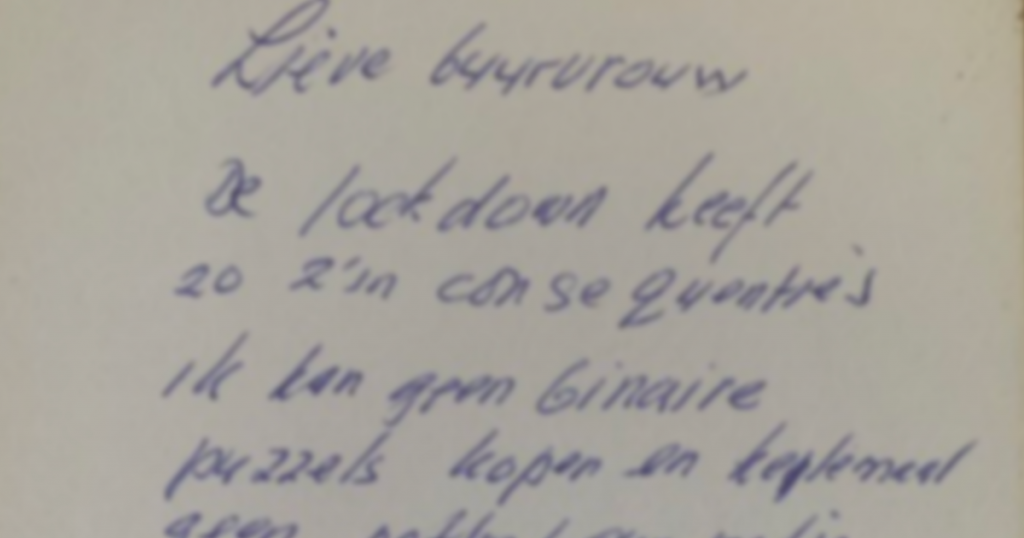 Lieve buurvrouw
De lockdown heeft
zo z'in consequenties
ik kan geen binaire
puzzels kopen en
geen